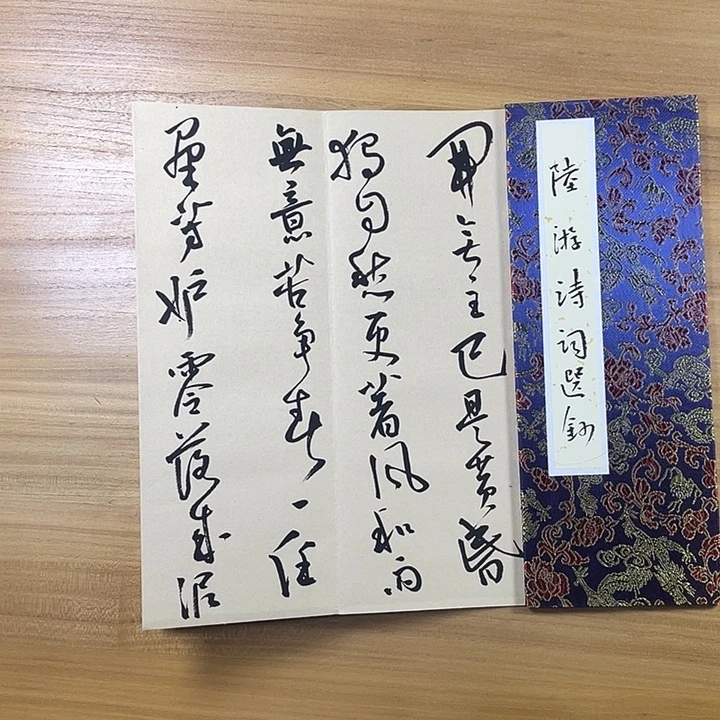 陸游詩詞選鈔
開無主已是黃昏
獨自愁更著風和雨
無意苦爭春一任
羣芳妒零落成泥